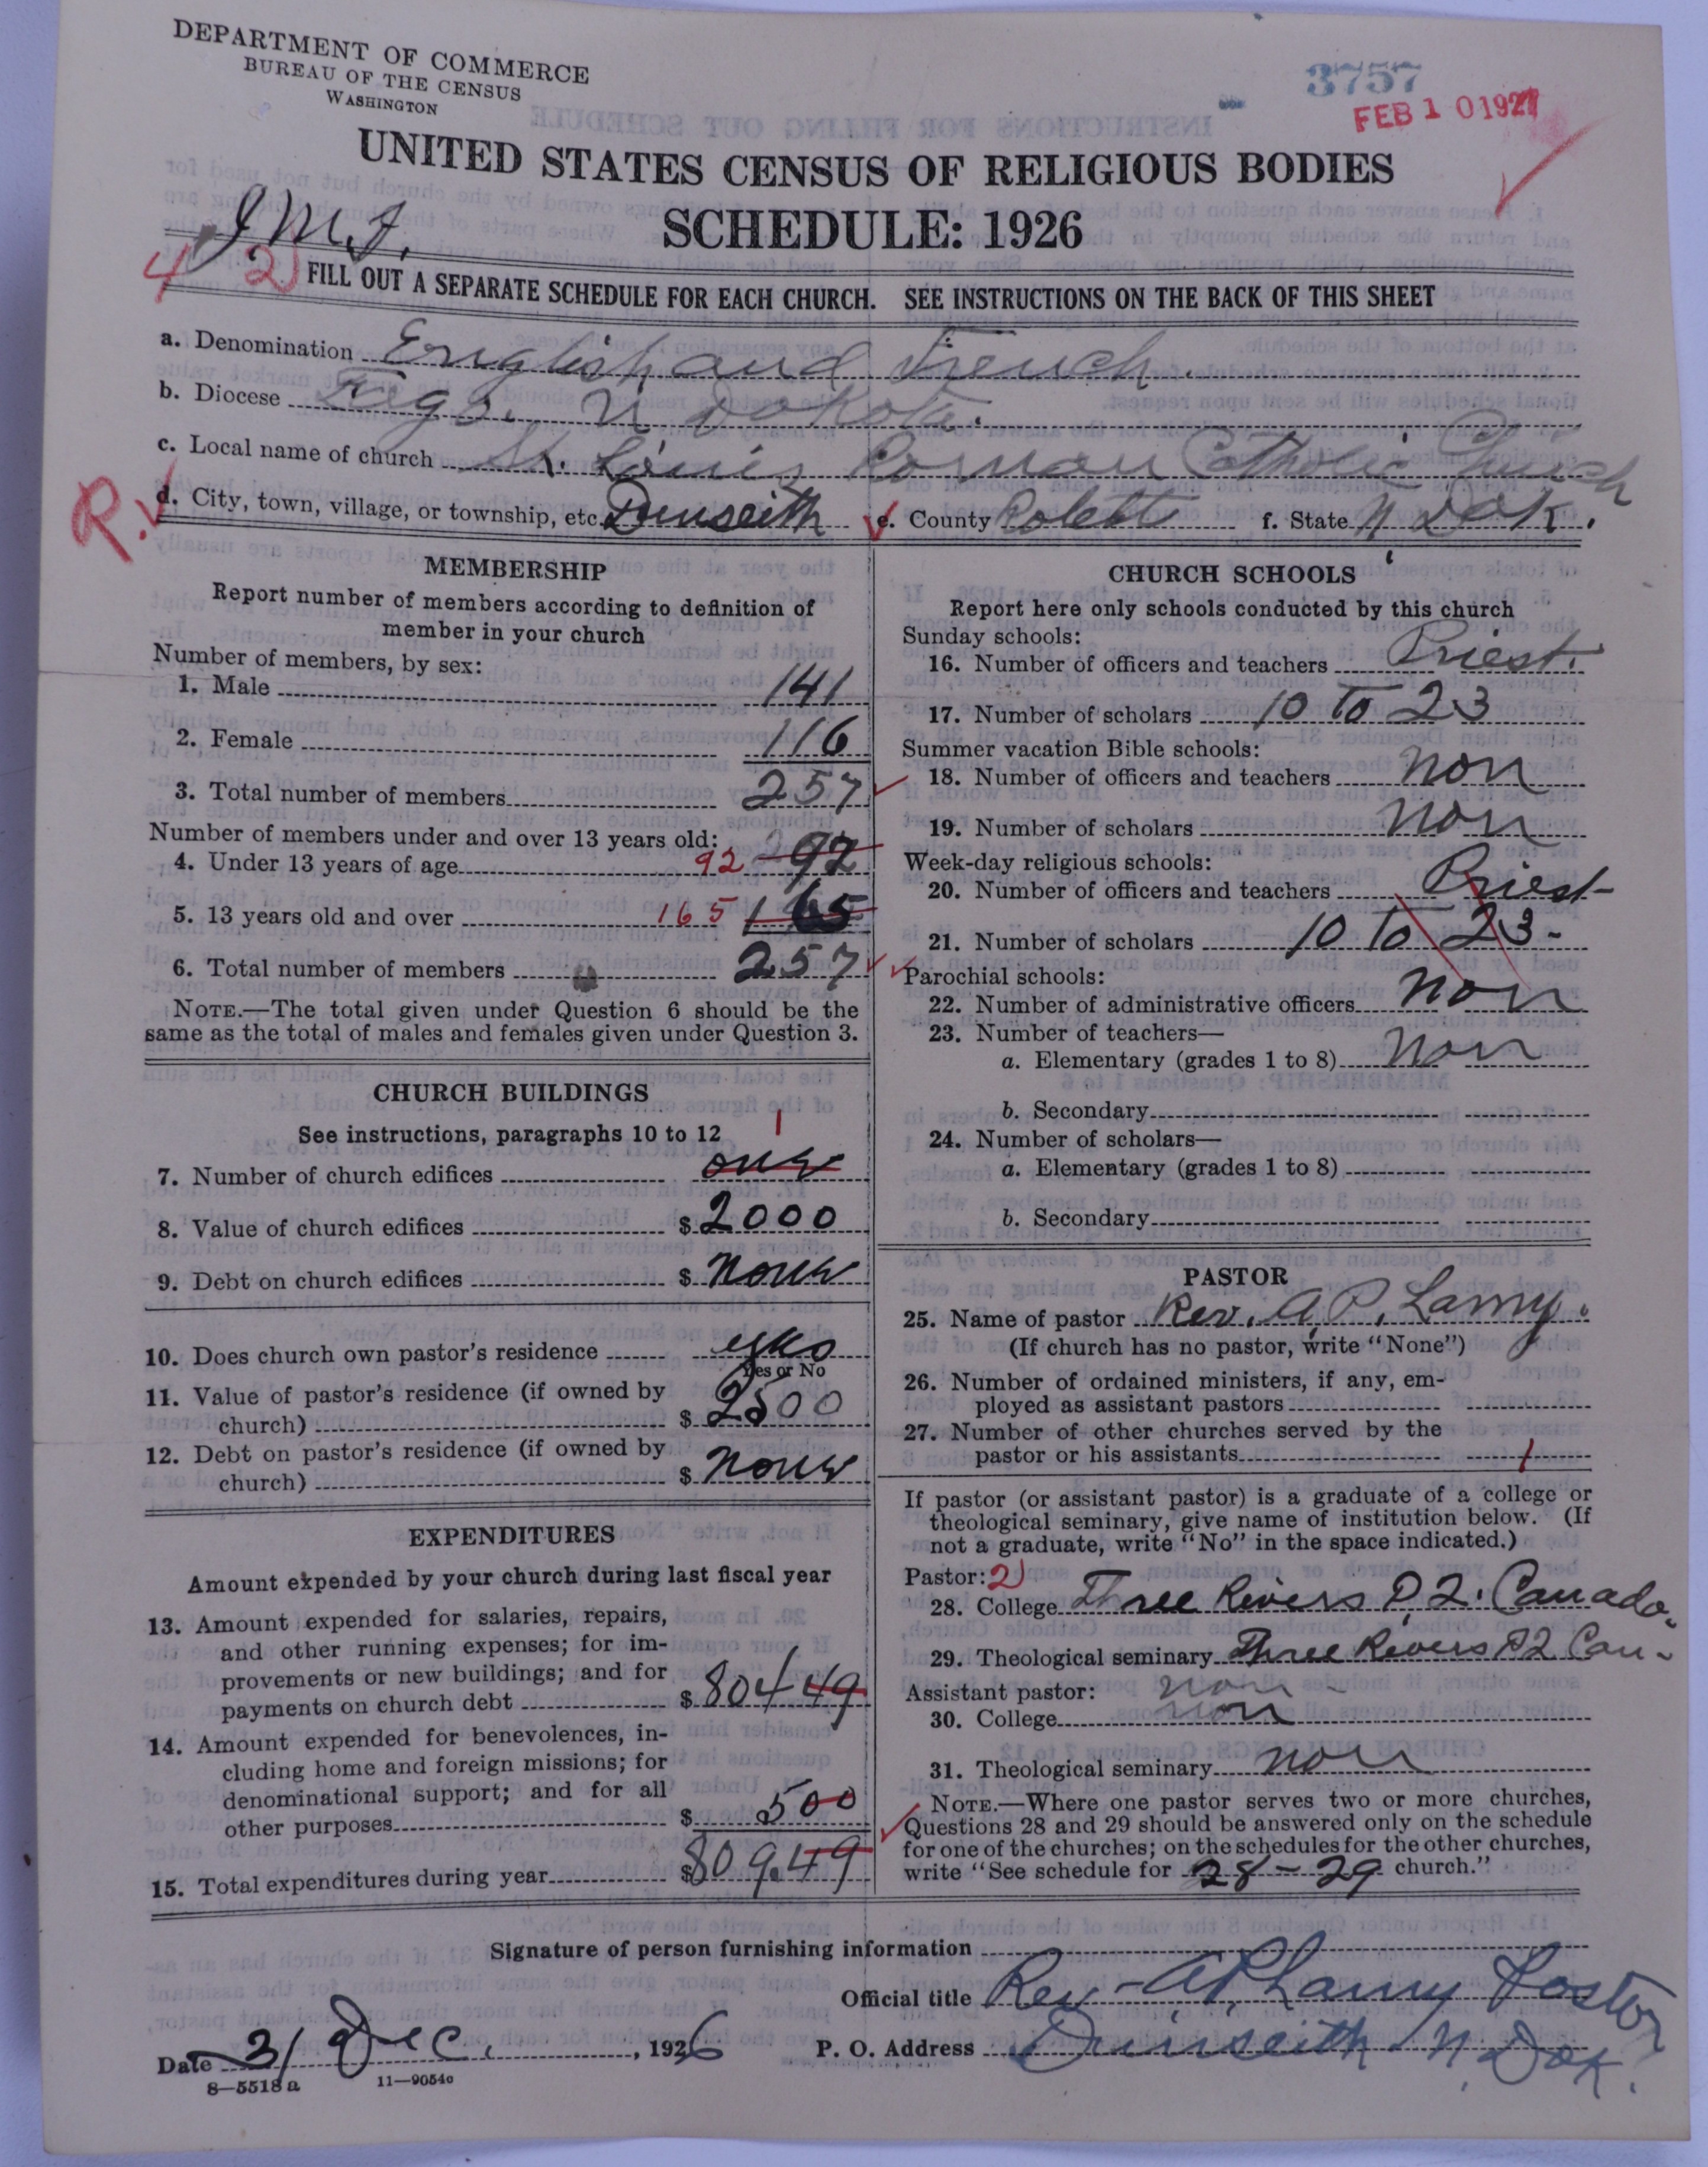 DEPARTMENT OF COMMERCE
BUREAU OF THE CENSUS
WASHINGTON
3757
FEB 10 1927
UNITED STATES CENSUS OF RELIGIOUS BODIES
SCHEDULE: 1926
J.M.J.
4 2)
FILL OUT A SEPARATE SCHEDULE FOR EACH CHURCH. SEE INSTRUCTIONS ON THE BACK OF THIS SHEET
a. Denomination English and French.
b. Diocese Fargo. N Dakota.
c. Local name of church St. Louis Roman Catholic Church
R.
d. City, town, village, or township, etc. Dunseith e. County Rolett f. State N Dak.
MEMBERSHIP
Report number of members according to definition of
member in your church
Number of members, by sex:
1. Male 141
2. Female 116
3. Total number of members 257
Number of members under and over 13 years old:
4. Under 13 years of age 92 92
5. 13 years old and over 165 165
6. Total number of members 257
NOTE.—The total given under Question 6 should be the
same as the total of males and females given under Question 3.
CHURCH BUILDINGS
See instructions, paragraphs 10 to 12
1
7. Number of church edifices one
8. Value of church edifices $ 2000
9. Debt on church edifices $ None
10. Does church own pastor's residence
Yes or No
11. Value of pastor's residence (if owned by
church) $ 2500
12. Debt on pastor's residence (if owned by
church) $ None
EXPENDITURES
Amount expended by your church during last fiscal year
13. Amount expended for salaries, repairs,
and other running expenses; for im-
provements or new buildings; and for
payments on church debt $ 804 49
14. Amount expended for benevolences, in-
cluding home and foreign missions; for
denominational support; and for all
other purposes $ 500
15. Total expenditures during year $ 809.49
CHURCH SCHOOLS
Report here only schools conducted by this church
Sunday schools:
16. Number of officers and teachers Priest.
17. Number of scholars 10 to 23
Summer vacation Bible schools:
18. Number of officers and teachers non
19. Number of scholars non
Week-day religious schools:
20. Number of officers and teachers Priest
21. Number of scholars 10 to 23-
Parochial schools:
22. Number of administrative officers non
23. Number of teachers—
a. Elementary (grades 1 to 8) non
b. Secondary
24. Number of scholars—
a. Elementary (grades 1 to 8)
b. Secondary
PASTOR
25. Name of pastor Rev. A. P. Lamy.
(If church has no pastor, write "None")
26. Number of ordained ministers, if any, em-
ployed as assistant pastors
27. Number of other churches served by the
pastor or his assistants 1
If pastor (or assistant pastor) is a graduate of a college or
theological seminary, give name of institution below. (If
not a graduate, write "No" in the space indicated.)
Pastor: 2)
28. College Three Rivers P.2. Canada.
29. Theological seminary Three Rivers P2 Can-
Assistant pastor: non
30. College non
31. Theological seminary non
NOTE.—Where one pastor serves two or more churches,
Questions 28 and 29 should be answered only on the schedule
for one of the churches; on the schedules for the other churches,
write "See schedule for 28-29 church."
Signature of person furnishing information
Official title Rev-A.P. Lamy Pastor
Date 31 Dec. , 1926 P. O. Address Dunseith N. Dak.
8—5518a 11—9054c